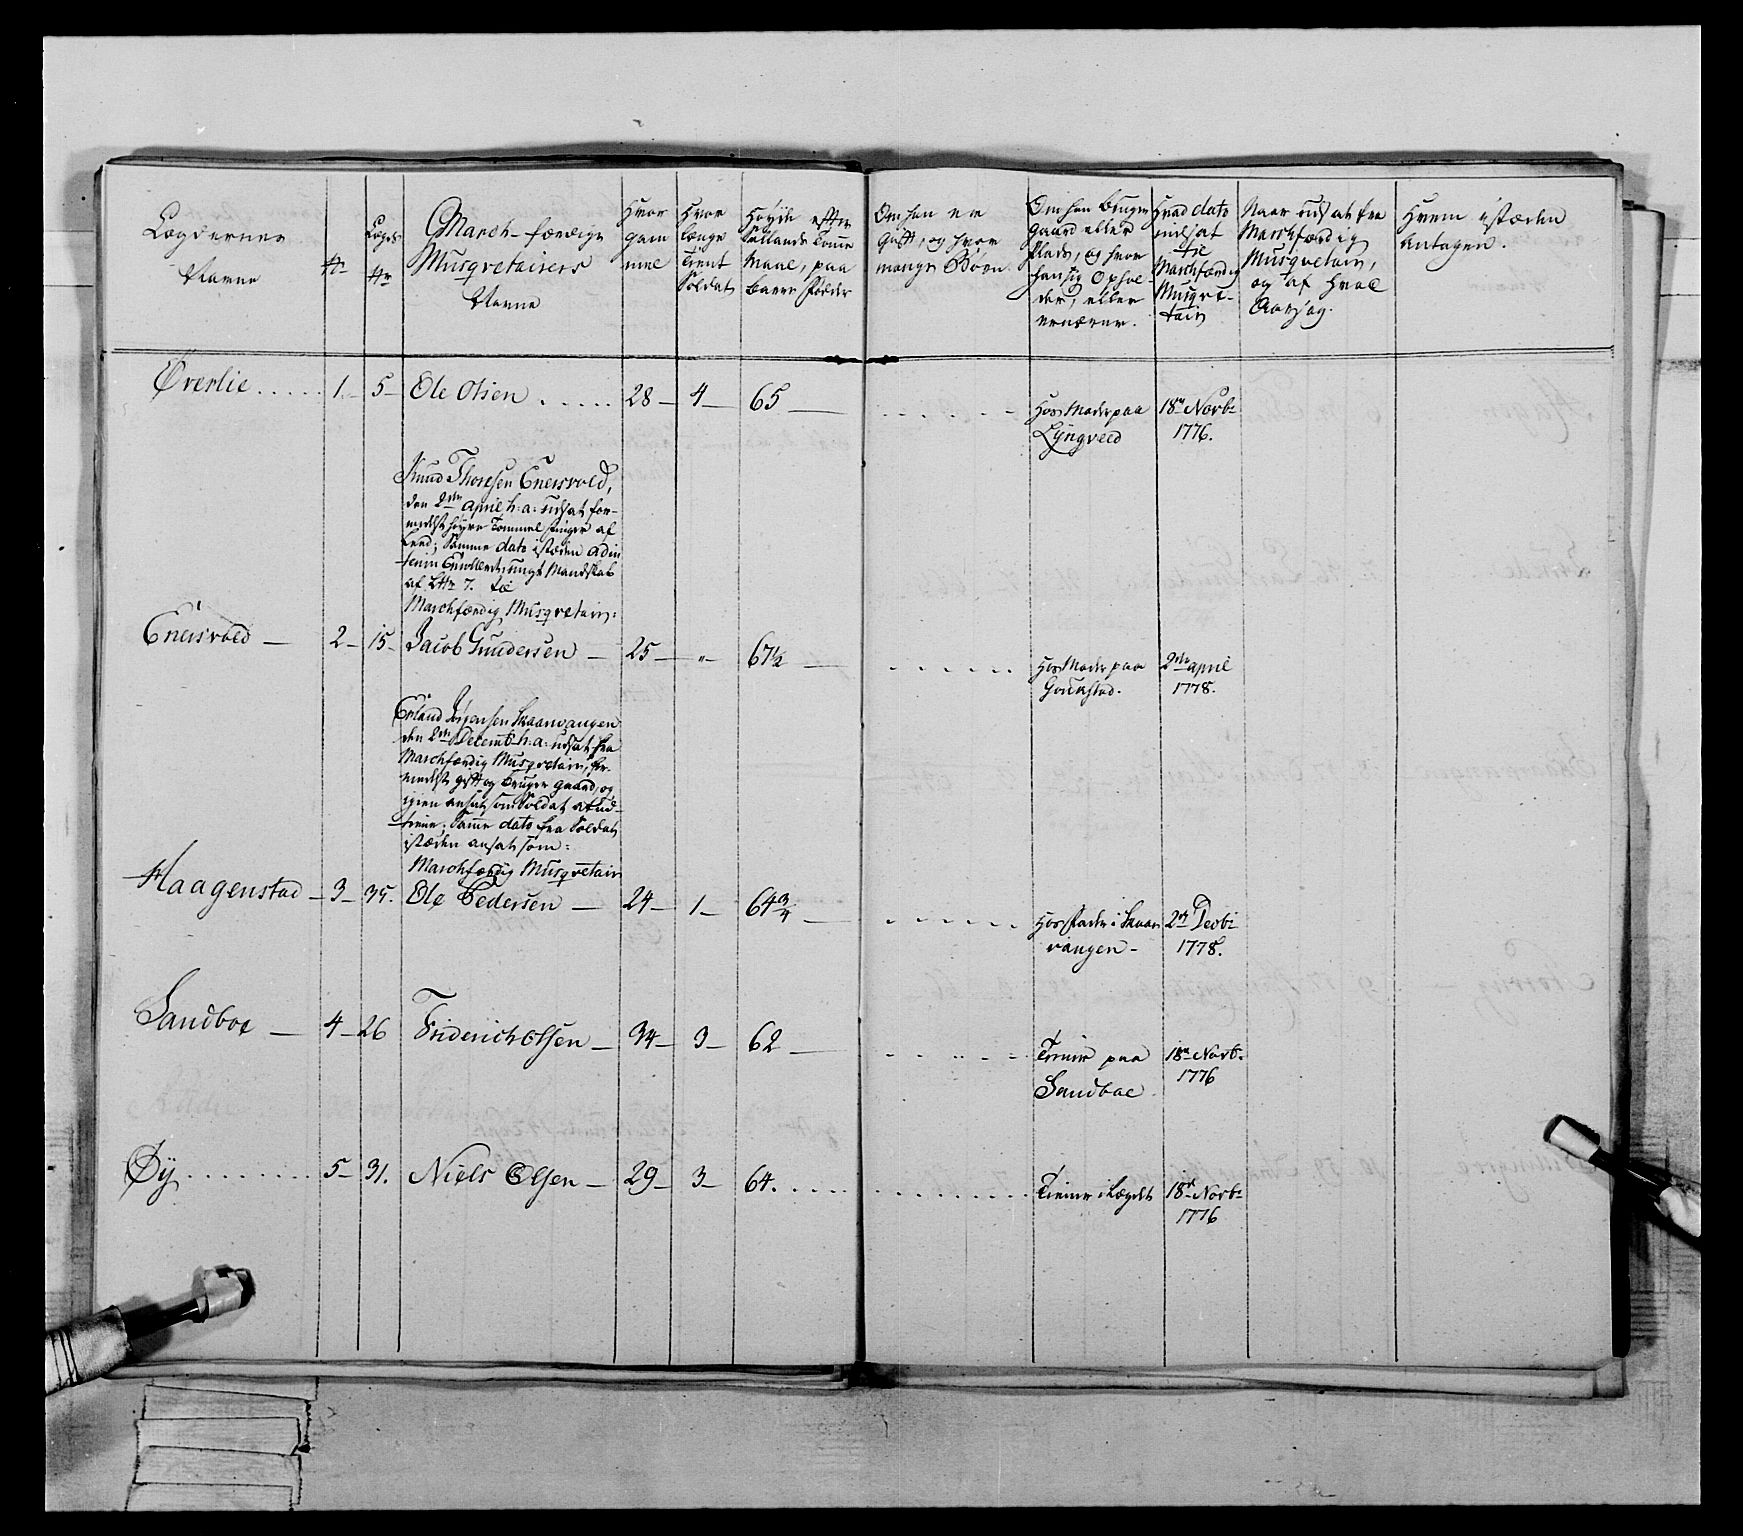 Lægdernes
Navne
No
Lægds
No
March-færdige
Musqvetairers
Navne
Hvor
gam
mel
Hvor
længe
tient
Soldat
Høyde efter
Sællands Tomme
Maal, paa
bare Fødder
Om han er
gift, og hvor
mange Børn
Om han bruger
gaard eller
Plads, og hvor
han sig Ophol-
der, eller
ernærer.
Hvad dato
indsat
til
Marchfærdig
Musqve-
tair
Naar udsat fra
Marchfærdig
Musqvetair,
og af hvad
Aarsag.
Hvem istæden
Antagen.
Øverlie . . . . . 1. 5 Ole Olsen . . . . . 28 4 65 Hos Moder paa 18de Novb:
Lyngveed 1776.
Knud Thoresen Enersvold,
den 2den April h: a: udsat for-
medelst høyre Tommel finger af
Leed; Samme dato istæden
Mandskab
af No 7. til
Marchfærdig Musqvetair:
Enersvold 2 15 Jacob Gundersen 25 " 67½ Hos Moder paa 2den april
1778.
Erland Jörgensen Skaarvangen
den 2den Decemb: h: a: udsat fra
Marchfærdig Musqvetair, for-
medelst gift og bruger gaard, og
igien ansat som Soldat
Samme dato fra Soldat
istæden ansat som:
Marchfærdig Musqvetair
Haagenstad 3 35. Ole Pedersen 24 1 64¾ Hos Fader i Skaar 2den Decbr:
vangen 1778.
Sandboe 4 26 Friderich Olsen 34 3 62 Tiener paa 18de Novb:
Sandboe 1776
Øy . . . . . . . 5 31. Niels Olsen 29 3 64. . . . . Tiener i Lægdet 18de Novb:
1776